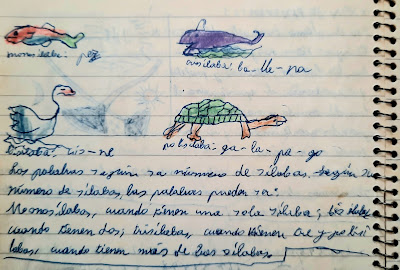 monosílaba: pez
trisílaba: ba-lle-na
bisílaba: cis-ne
polisílaba: ga-la-pa-go
Las palabras según su número de sílabas. Según su
número de sílabas, las palabras pueden ser:
Monosílabas, cuando tienen una sola sílaba; bisílabas
cuando tienen dos; trisílabas, cuando tienen tres y polisí
labas, cuando tienen más de tres sílabas.